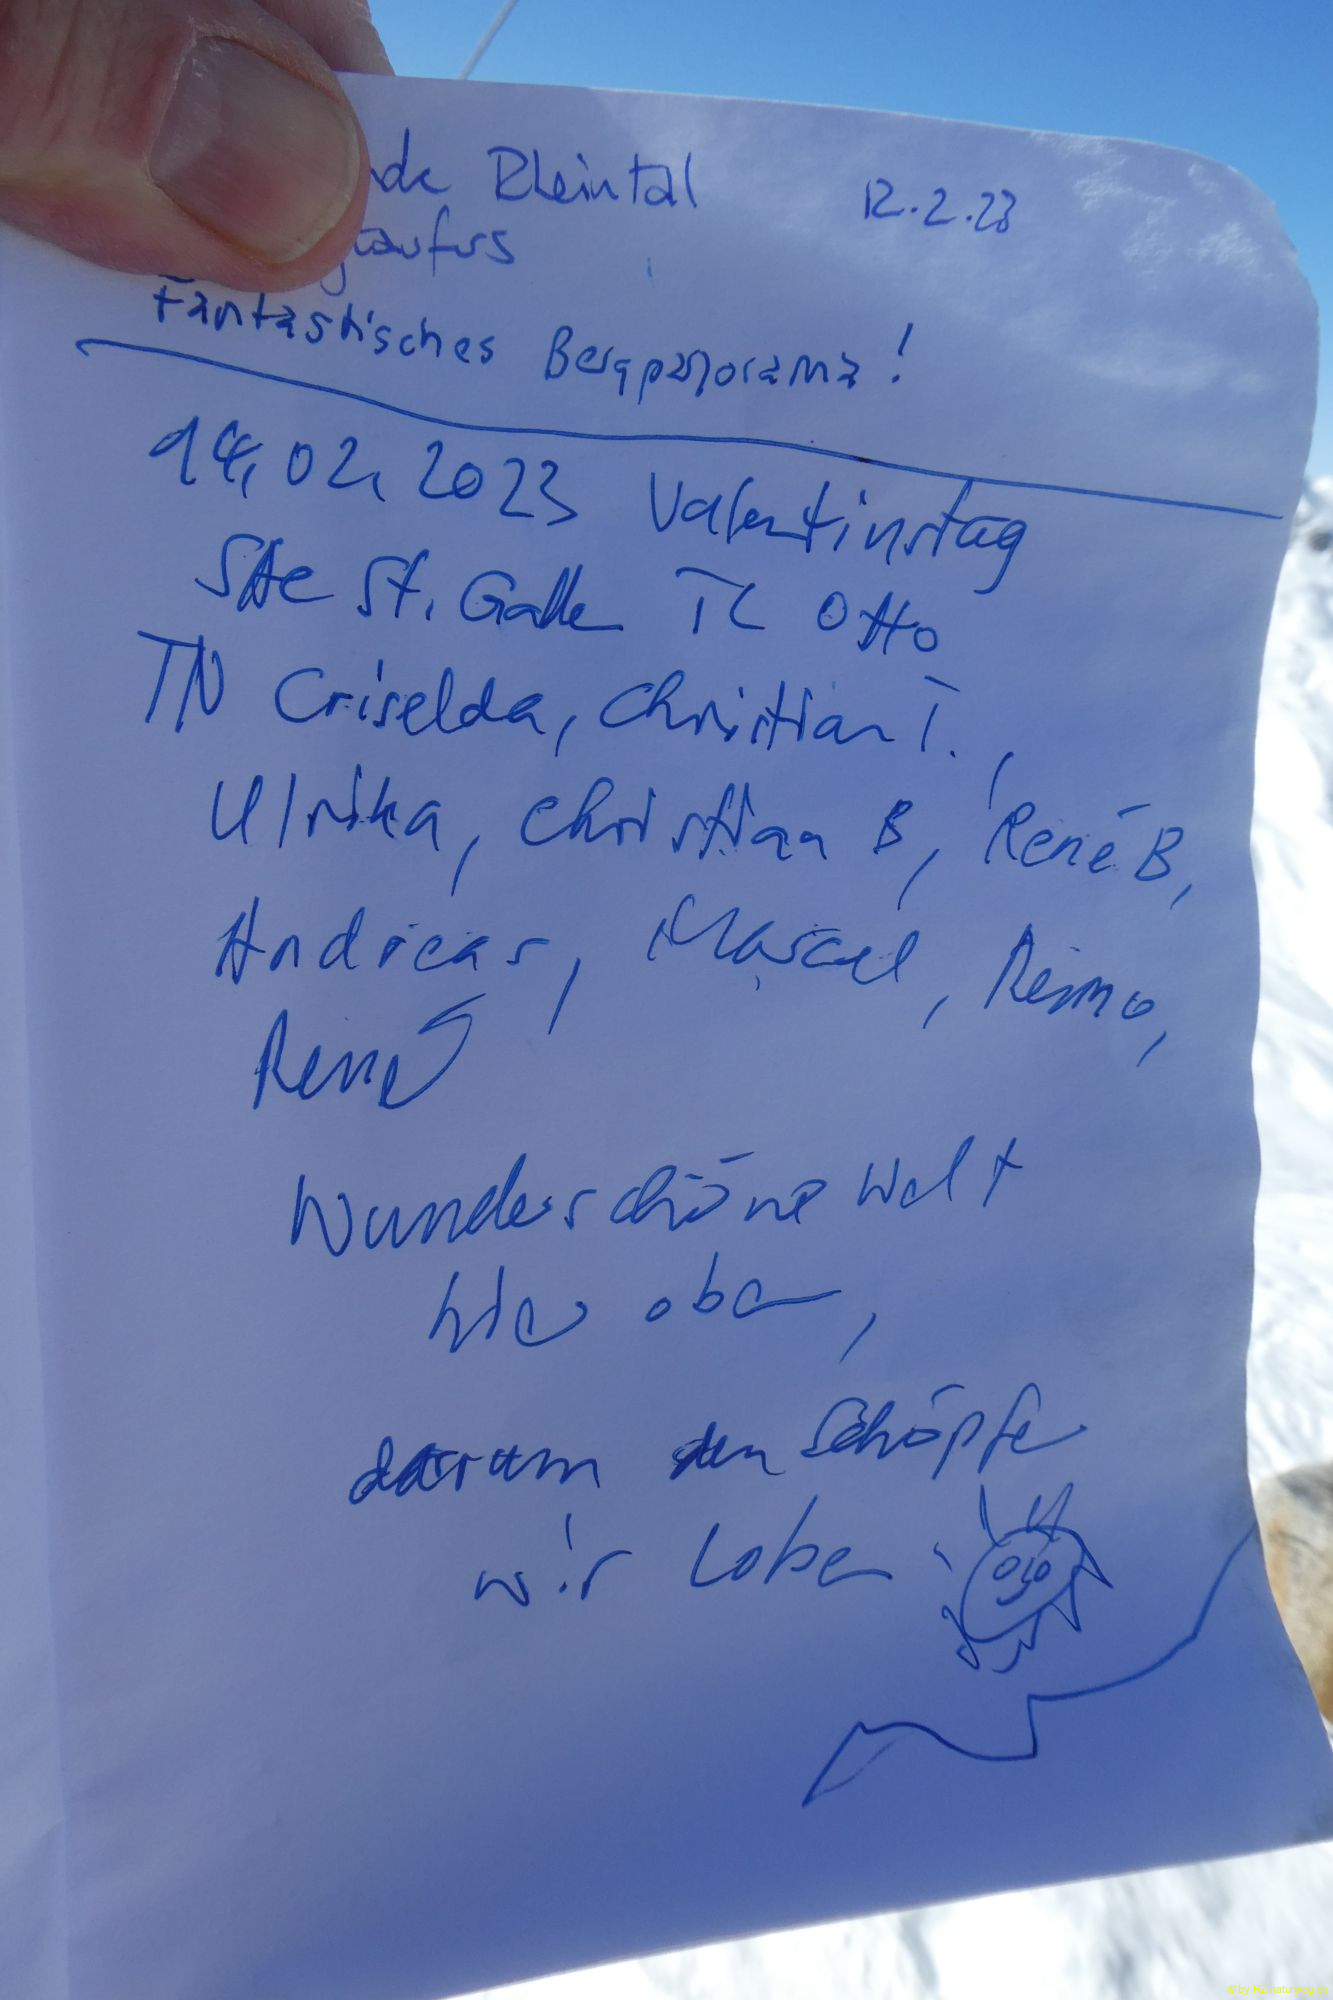 Rheintal 12.2.23
Fantastisches Bergpanorama!
14.02.2023 Valentinstag
St. Gallen TL Otto
TN Criselda, Christian T.,
Ulrika, Christian B, René B,
Andreas, Marcel, Remo,
René
Wunderschöne Welt
hier oben,
darum den Schöpfer
wir loben